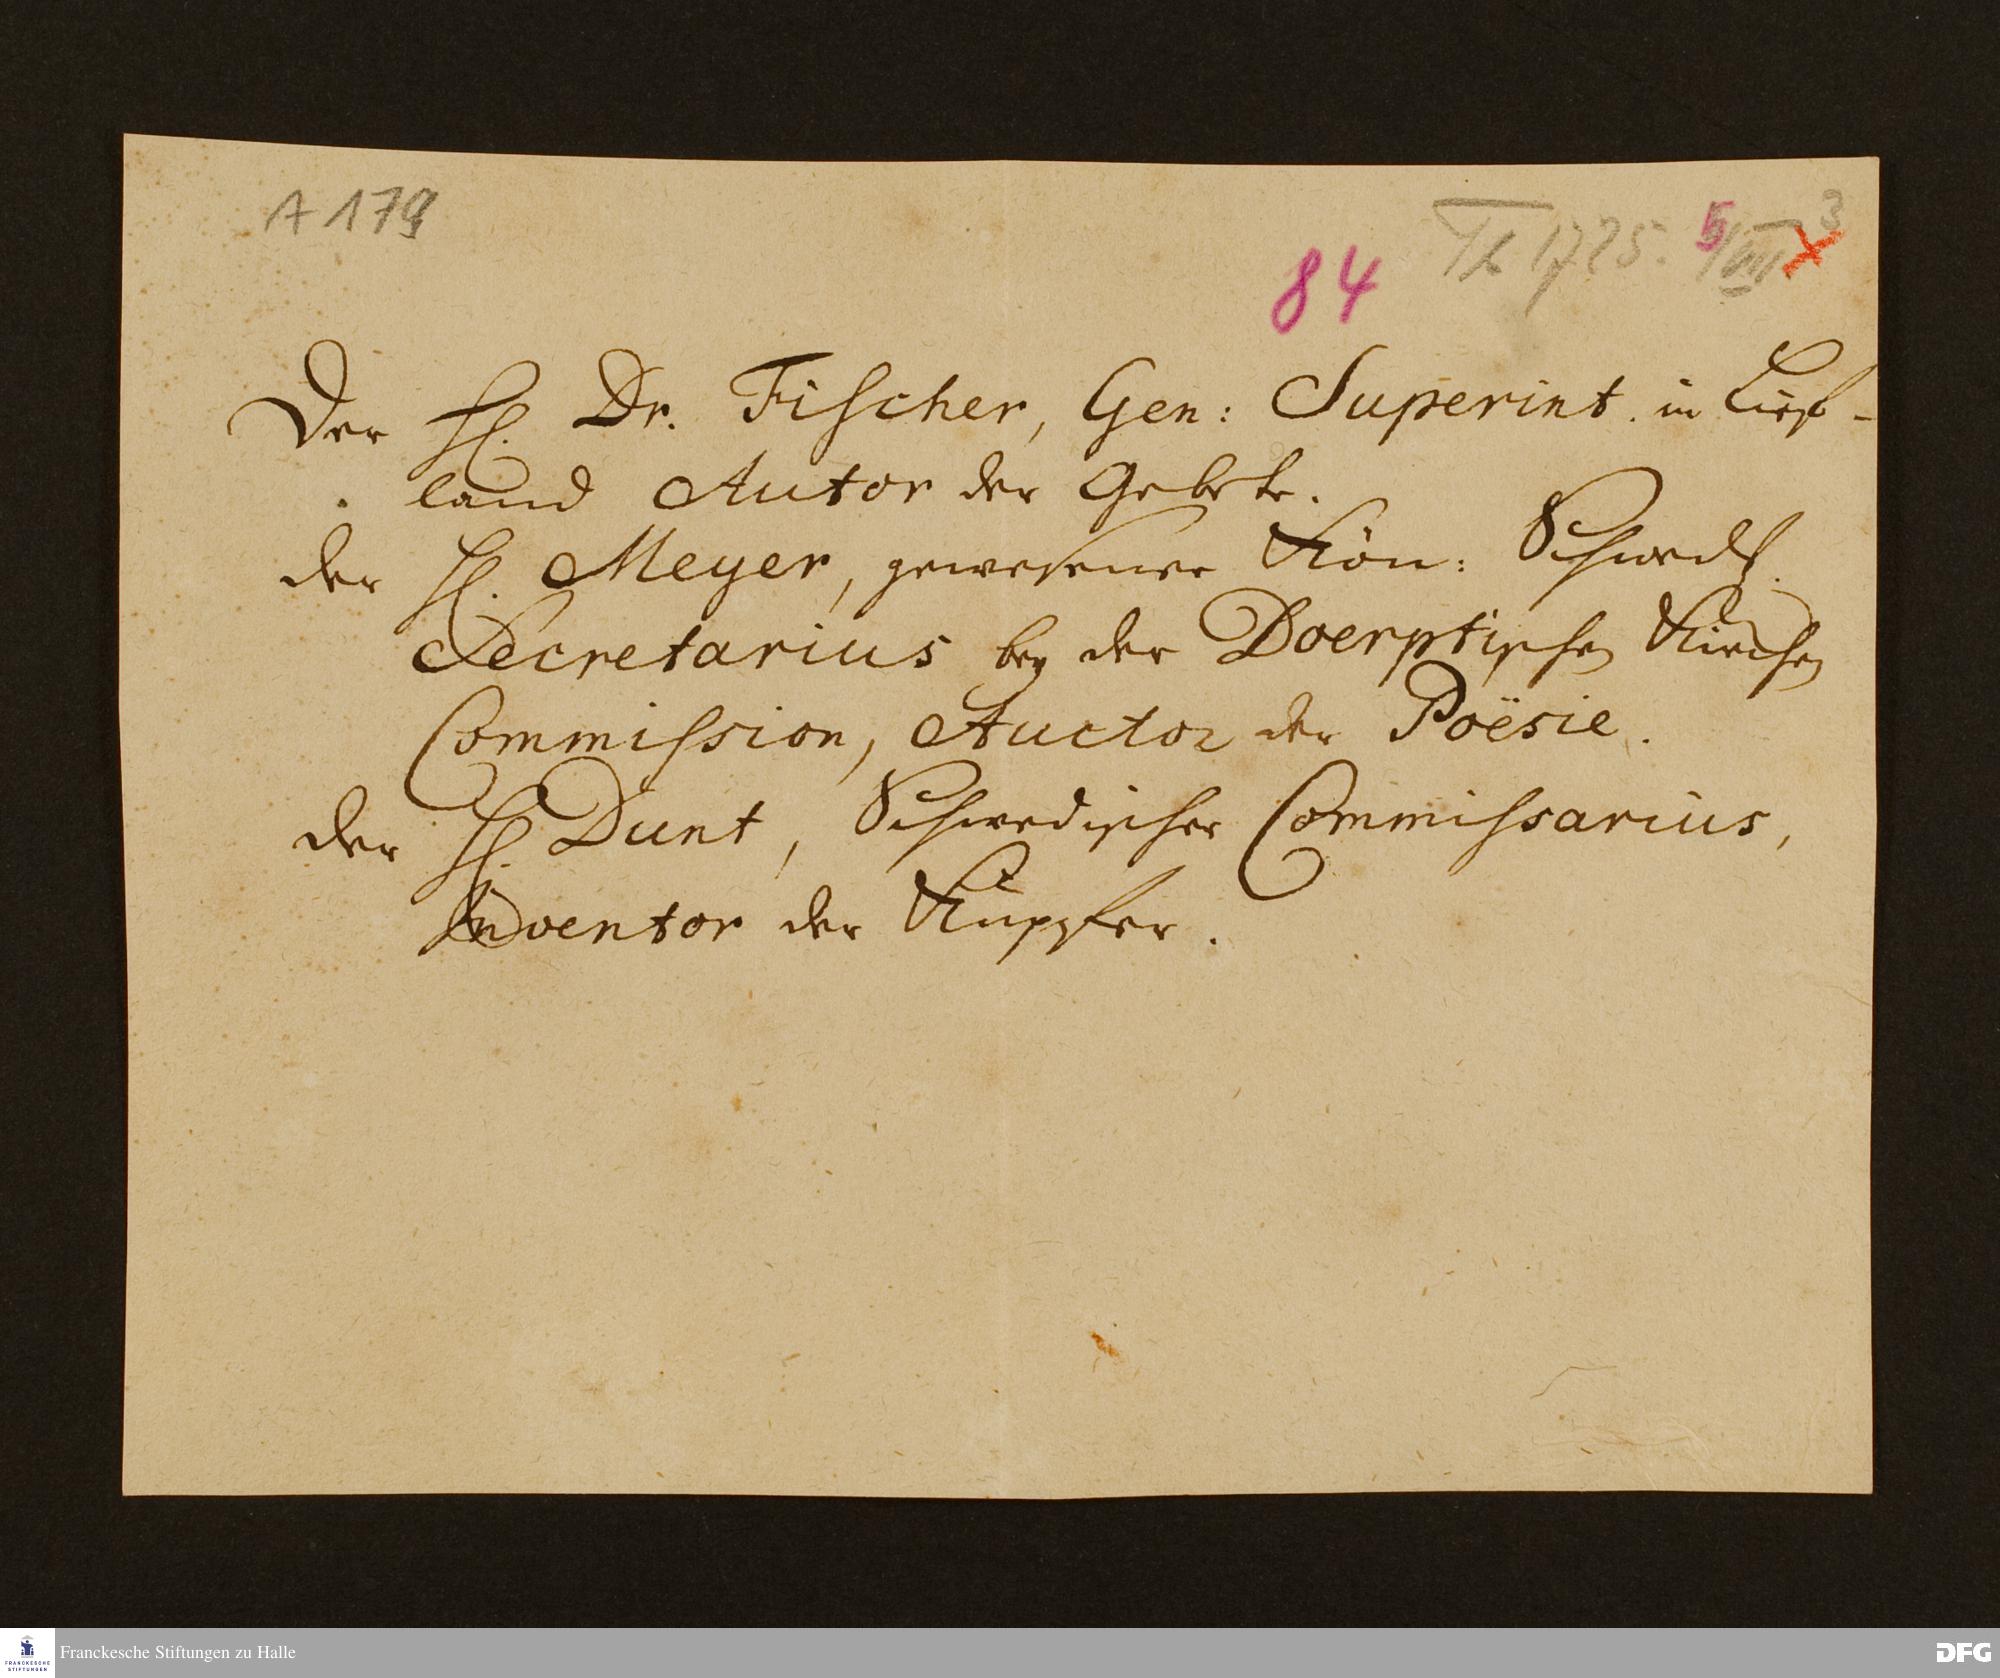 A 179
84
1725. 5/VIII 3
Der H. Dr. Fischer, Gen: Superint. in Lief-
land Autor der Gebete.
der H. Meyer, gewesener Kön: Schwed.
Secretarius bey der Doerptischen Kirchen
Commission, Auctor der Poësie.
der H. Dunt, Schwedischer Commissarius,
Inventor der Kupfer.
FRANCKESCHE
STIFTUNGEN
Franckesche Stiftungen zu Halle
DFG